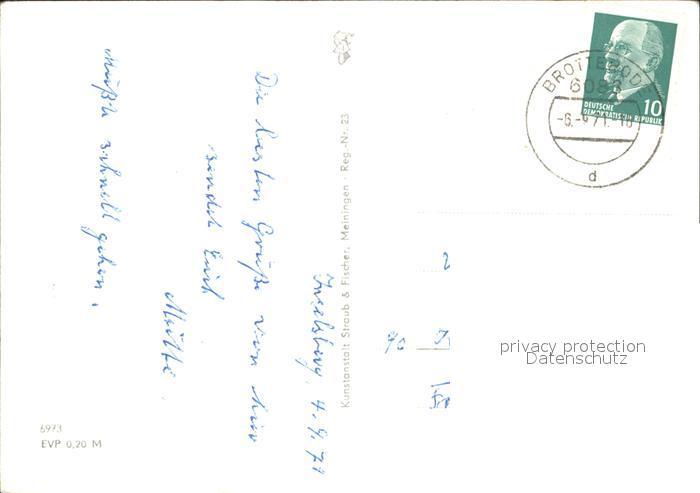 Inselsberg, 4.9.71
Die besten Grüße von hier
sendet Euch
Mutti.
Mußte schnell gehen.
Kunstanstalt Straub & Fischer, Meiningen · Reg.-Nr. 23
BROTTERODE
6083
-6.-9.71.-18
d
DEUTSCHE
DEMOKRATISCHE REPUBLIK
10
privacy protection
Datenschutz
6973
EVP 0,20 M